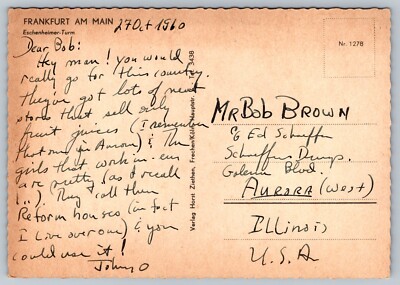 FRANKFURT AM MAIN
Eschenheimer-Turm
27 Oct 1960
Nr. 1278
Dear Bob:
Hey man! you would
really go for this country.
they've got lots of neat
stores that sell only
fruit juices (I remember
that one in Aurora) & the
girls that work in 'em
are pretty (as I recall
...). They call them
Reform houses (in fact
I live over one) & you
could use it!
John O
Verlag Horst Ziethen, Frechen/Köln, Hauptstr. Tel. 3438
Mr Bob Brown
c/o Ed Schaeffer
Schaeffer Dump.
Galena Blvd.
Aurora (West)
Illinois
U.S.A